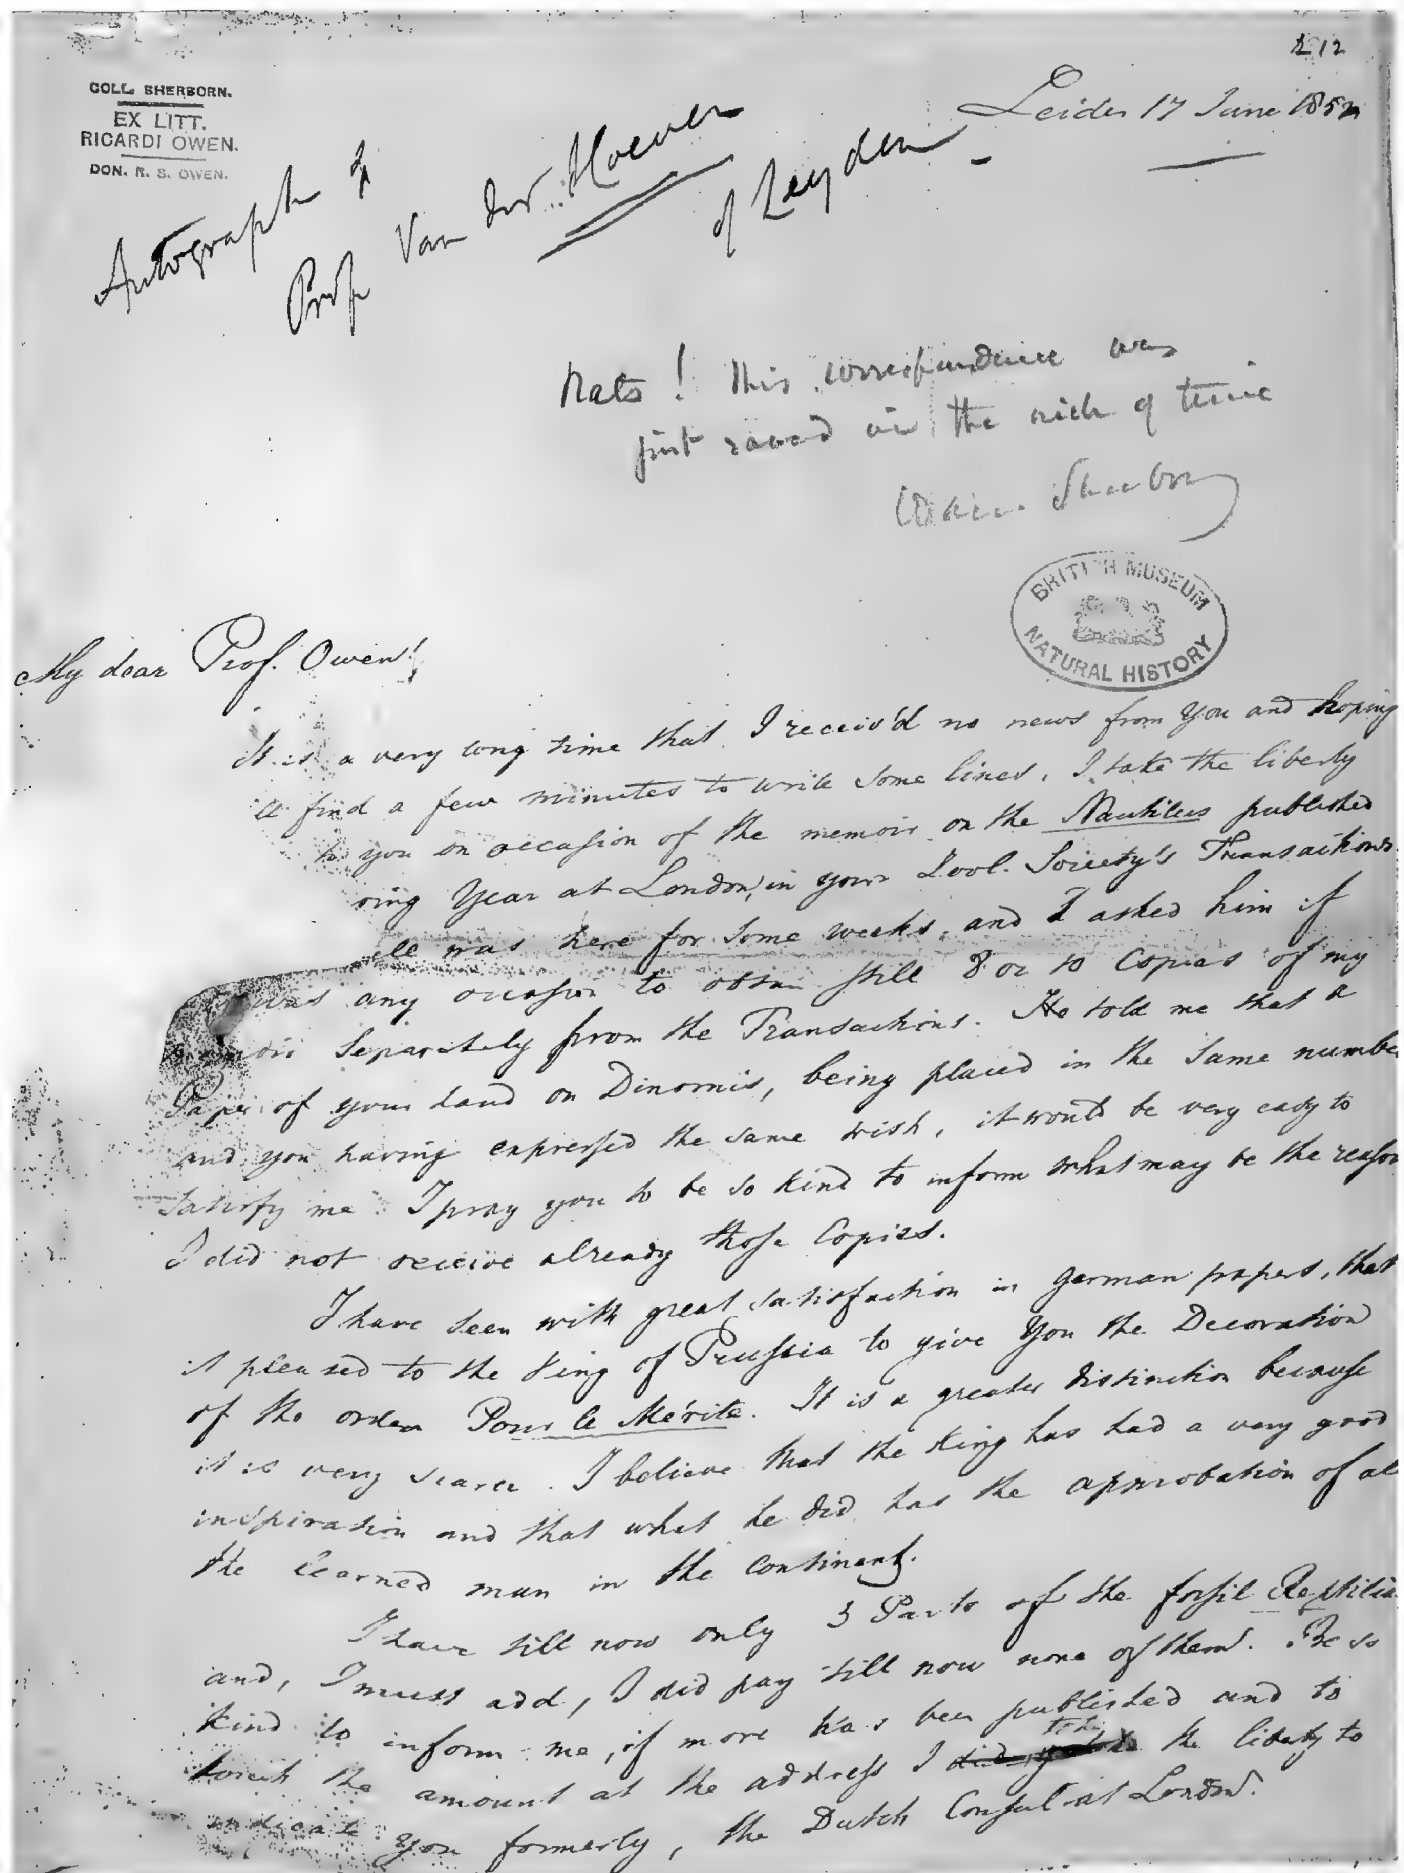 212
COLL. SHERBORN.
EX LITT.
RICARDI OWEN.
DON. R. S. OWEN.
Leiden 17 June 1852
Autograph of
Prof Van der Hoeven
of Leyden
Rats! This correspondence was
just saved in the nick of time
Sherborn
BRITISH MUSEUM
NATURAL HISTORY
My dear Prof. Owen!
It is a very long time that I receiv'd no news from you and hoping
find a few minutes to write some lines, I take the liberty
to you on occasion of the memoir on the Nautilus published
ring Year at London, in your Zool. Society's Transactions
was here for some weeks, and I asked him if
was any occasion to obtain still 8 or 10 Copies of my
separately from the Transactions. He told me that a
Paper of your hand on Dinornis, being placed in the same number
and you having expressed the same wish, it would be very easy to
satisfy me. I pray you to be so kind to inform what may be the reason
I did not receive already those Copies.
I have seen with great satisfaction in german papers, that
it pleased to the King of Prussia to give You the Decoration
of the order Pour le Mérite. It is a greater distinction because
it is very scarce. I believe that the King has had a very good
inspiration and that what he did has the approbation of al
the learned man in the continent.
I have till now only 3 Parts of the fossil Reptilia
and, I must add, I did pay till now none of them. Be so
kind to inform me, if more has been published and to
the amount at the address I did take the liberty to
indicate you formerly, the Dutch Consul at London.